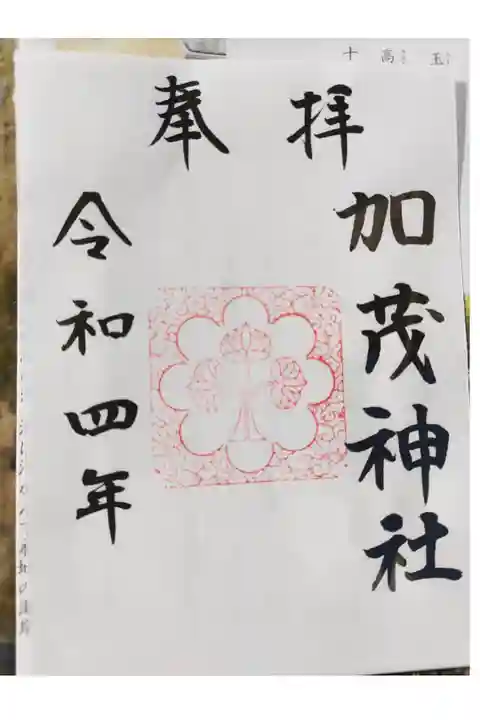 奉拝
加茂神社
令和四年
十 高 玉